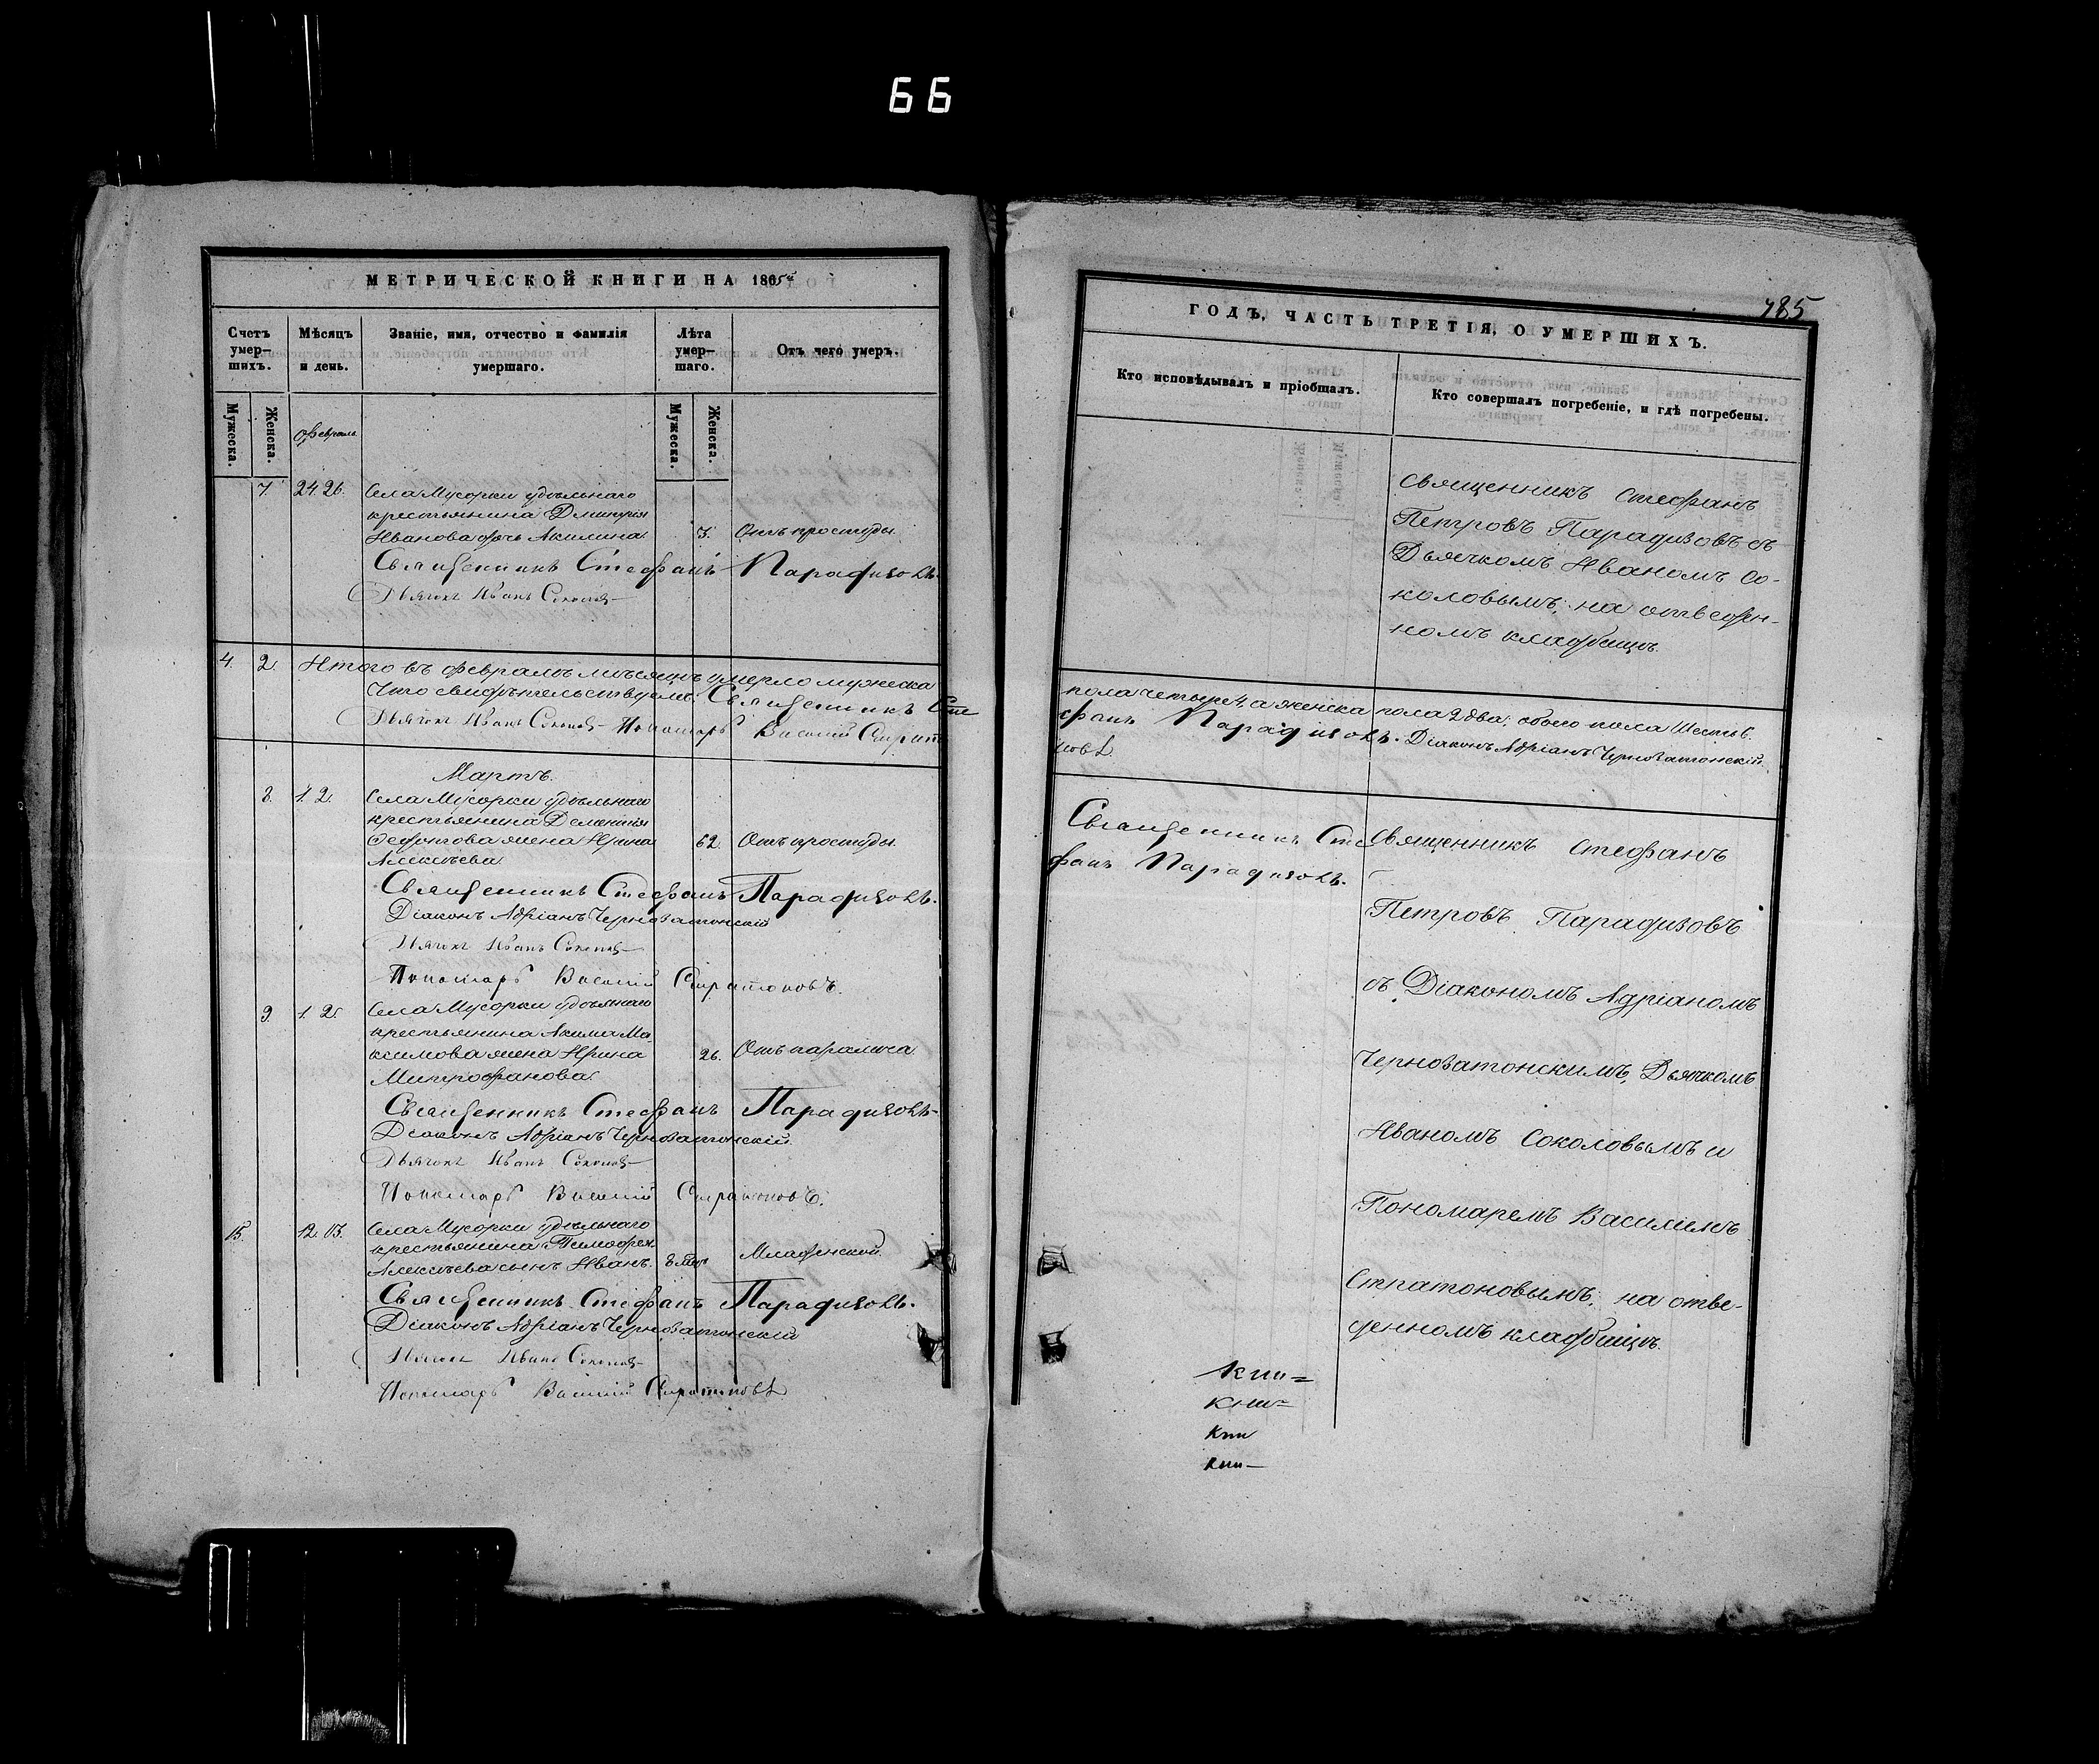 66
МЕТРИЧЕСКОЙ КНИГИ НА 1865й
Счетъ умер-шихъ.
Мѣсяцъ и день.
Званіе, имя, отчество и фамилія умершаго.
Лѣта умер-шаго.
Отъ чего умеръ.
Мужеска.
Женска.
Мужеска.
Женска.
Февраль
7. 24. 26. Села Мусорки удѣльнаго
крестьянина Димитрія
Иванова дочь Акилина. 3. Отъ простуды.
Священникъ Стефанъ Парадизовъ.
Дьячокъ Иванъ Соколовъ
4. 2. Итого въ февралѣ мѣсяцѣ умерло мужеска
Что свидѣтельствуемъ: Священникъ Сте
Дьячокъ Иванъ Соколовъ Пономарь Василій Страт
Мартъ.
8. 1. 2. Села Мусорки удѣльнаго
крестьянина Дементія
жена Ирина 62. Отъ простуды.
Алексѣева
Священникъ Стефанъ Парадизовъ.
Діаконъ Адріанъ Черноватонскій
Дьячокъ Иванъ Соколовъ
Пономарь Василій Стратоновъ.
9. 1. 2. Села Мусорки удѣльнаго
крестьянина Акима Ма
ксимова жена Ирина 26. Отъ паралича
Митрофанова.
Священникъ Стефанъ Парадизовъ
Діаконъ Адріанъ Черноватонскій.
Дьячокъ Иванъ Соколовъ
Пономарь Василій Стратоновъ.
15. 12. 13. Села Мусорки удѣльнаго
крестьянина Тимофея
Алексѣева сынъ Иванъ. 8 Младенской.
Священникъ Стефанъ Парадизовъ.
Діаконъ Адріанъ Черноватонскій
Дьячокъ Иванъ Соколовъ
Пономарь Василій Стратоновъ
785
ГОДЪ, ЧАСТЬ ТРЕТІЯ, О УМЕРШИХЪ.
Кто исповѣдывалъ и пріобщалъ.
Кто совершалъ погребеніе, и гдѣ погребены.
Священникъ Стефанъ
Петровъ Парадизовъ съ
Дьячкомъ Иваномъ Со-
коловымъ; на отведен-
номъ кладбищѣ.
пола четыре 4, а женска пола 2 два; обоего пола Шесть 6.
фанъ Парадизовъ. Діаконъ Адріанъ Черноватонскій.
новъ.
Священникъ Сте
фанъ Парадизовъ.
Священникъ Стефанъ
Петровъ Парадизовъ
съ Діакономъ Адріаномъ
Черноватонскимъ, Дьячкомъ
Иваномъ Соколовымъ и
Пономаремъ Василіемъ
Стратоновымъ; на отве-
денномъ кладбищѣ.
кни=
кни=
кни
кни-